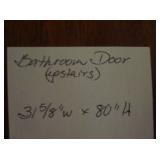 Bathroom Door
(upstairs)
31 5/8" W x 80" H